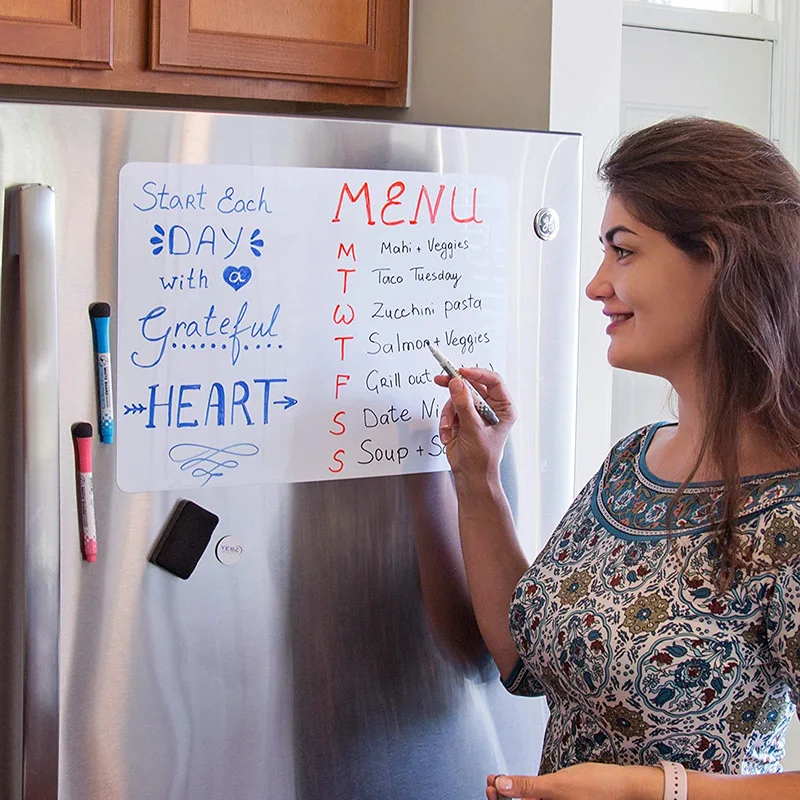 Start Each
DAY
with a
Grateful
HEART
MENU
M Mahi + Veggies
T Taco Tuesday
W Zucchini pasta
T Salmon + Veggies
F Grill out
S Date
S Soup +
GE